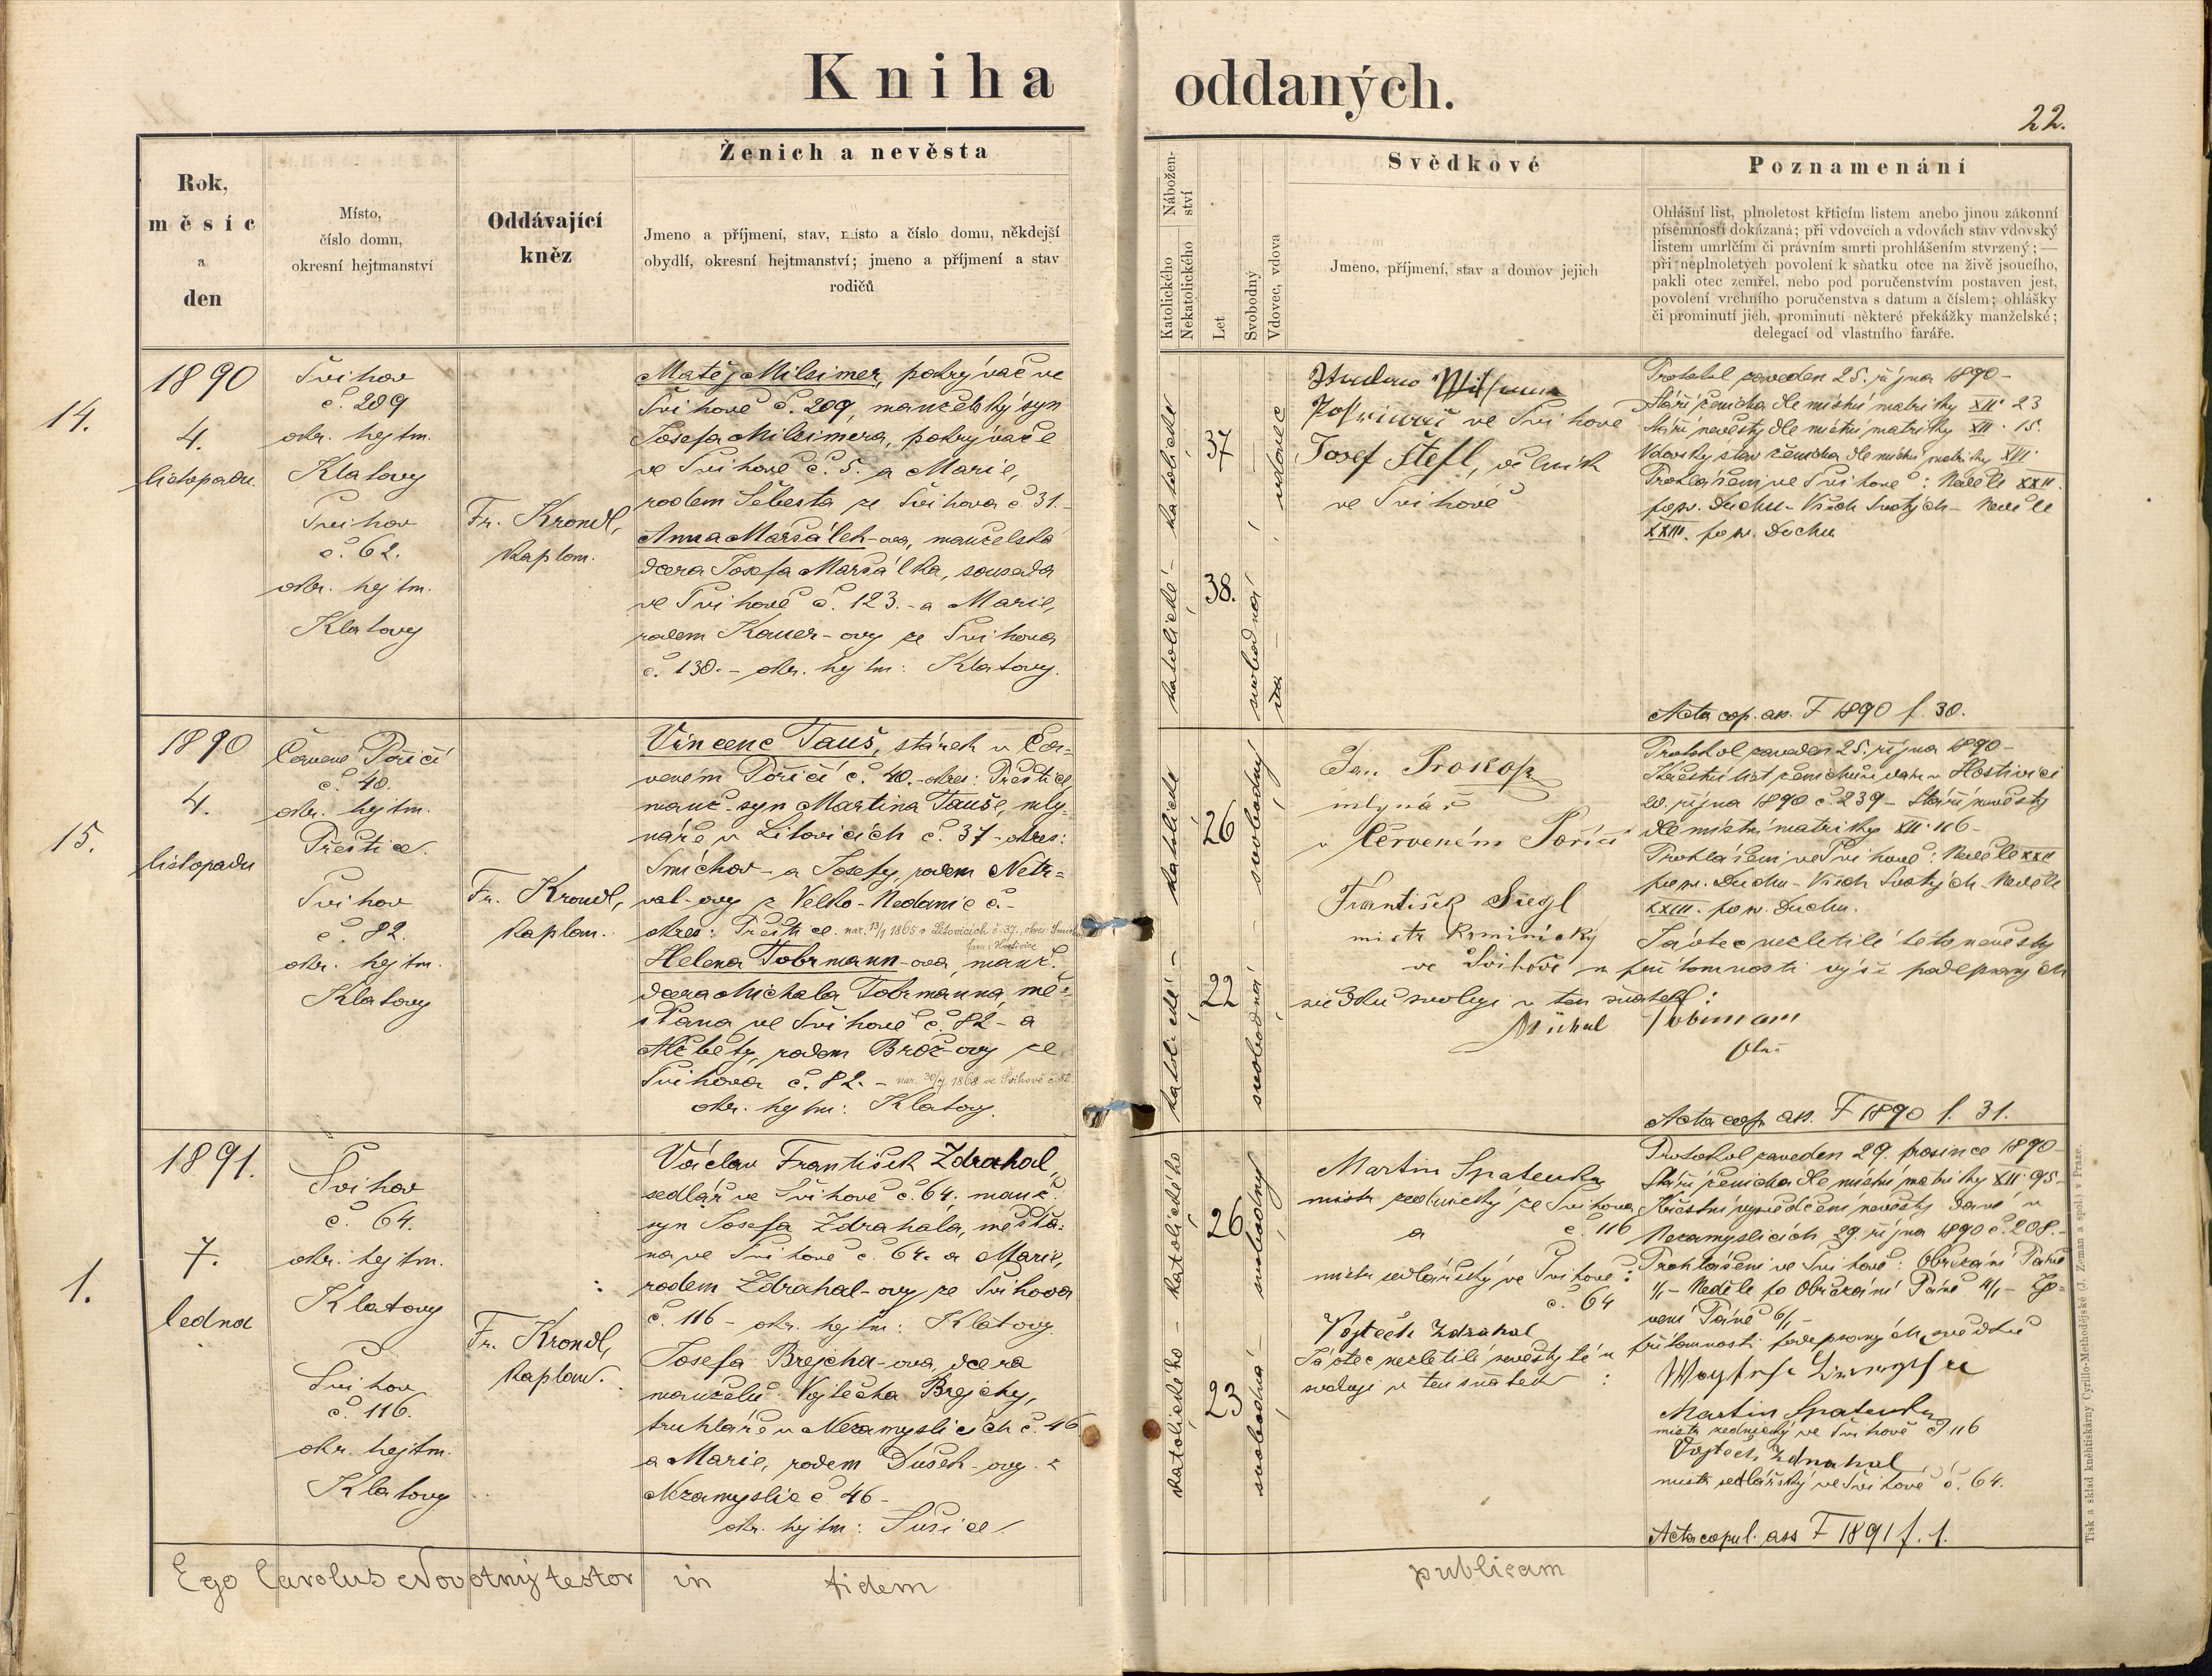 Kniha oddaných.
22.
Rok,
měsíc
a
den
Místo,
číslo domu,
okresní hejtmanství
Oddávající
kněz
Ženich a nevěsta
Jmeno a příjmení, stav, místo a číslo domu, někdejší
obydlí, okresní hejtmanství; jmeno a příjmení a stav
rodičů
Nábožen-
ství
Katolického
Nekatolického
Let
Svobodný
Vdovec, vdova
Svědkové
Jmeno, příjmení, stav a domov jejich
Poznamenání
Ohlášní list, plnoletost křticím listem anebo jinou zákonní
písemností dokázaná; při vdovcích a vdovách stav vdovský
listem umrlčím či právním smrti prohlášením stvrzený; —
při neplnoletých povolení k sňatku otce na živě jsoucího,
pakli otec zemřel, nebo pod poručenstvím postaven jest,
povolení vrchního poručenstva s datum a číslem; ohlášky
či prominutí jich, prominutí některé překážky manželské;
delegací od vlastního faráře.
14.
1890
4.
listopadu.
Švihov
č. 209
okr. hejtm.
Klatovy
Švihov
č. 62.
okr. hejtm.
Klatovy
Fr. Krondl,
kaplan.
Matěj Milsimer, pokrývač ve
Švihově č. 209, manželský syn
Josefa Milsimera, pokrývače
ve Švihově č. 5. a Marie,
rodem Šebesta ze Švihova č 31.-
Anna Maršálek-ova, manželská
dcera Josefa Maršálka, souseda
ve Švihově č. 123.- a Marie,
rodem Kauer-ovy ze Švihova
č. 130.- okr. hejtm: Klatovy.
katolické - katolické
37
38.
vdovec
svobodná
ve Švihově
Josef Štefl,
ve Švihově
Protokol zaveden 25. října 1890-
Stáří ženicha dle místní matriky XII. 23
Stáří nevěsty dle místní matriky XII. 15.
Vdovský stav ženicha dle místní matriky XVI.
Prohlášení ve Švihově: Neděle XXII.
po sv. Duchu - Všech Svatých - Neděle
XXIII. po sv. Duchu
Acta cop. as. F 1890 f. 30.
15.
1890
4.
listopadu
Červené Poříčí
č. 40.
okr. hejtm.
Přeštice.
Švihov
č. 82.
okr. hejtm.
Klatovy
Fr. Krondl,
kaplan.
Vincenc Tauš, stárek v Čer-
veném Poříčí č. 40.- okres: Přeštice,
manž. syn Martina Tauše, mly-
náře v Litovicích č. 37 - okres:
Smíchov - a Josefy, rodem Netr-
val-ovy z Velko-Nedanic č.-
okres: Přeštice. nar. 13/1 1865 v Litovicích č. 37. okres: Smíchov
fara: Hostivice
Helena Tobrmann-ova, manž.
dcera Michala Tobrmanna, mě-
šťana ve Švihově č. 82 - a
Alžběty, rodem Brož-ovy ze
Švihova č. 82.- nar. 30/4 1868 ve Švihově č. 82.
okr. hejtm: Klatovy.
katolické - katolické
26
22
svobodný
svobodná
Jan Prokop
mlynář
v Červeném Poříčí
František Siegl
mistr kominický
ve Švihově
Protokol zaveden 25. října 1890-
Křestní list ženichův dán v Hostivici
20. října 1890 č. 239 - Stáří nevěsty
dle místní matriky XII. 116-
Prohlášení ve Švihově: Neděle XXII
po sv. Duchu - Všech Svatých - Neděle
XXIII. po sv. Duchu.
Já otec nezletilé této nevěsty
v přítomnosti výše podepsaných
svědků svoluji v ten sňatek:
Michal Tobrmann
Acta cop. as. F 1890 f. 31.
1.
1891.
7.
ledna
Švihov
č. 64.
okr. hejtm.
Klatovy
Švihov
č. 116.
okr. hejtm.
Klatovy
Fr. Krondl,
kaplan.
Václav František Zdrahal,
sedlář ve Švihově č. 64. manž.
syn Josefa Zdrahala, měšťa-
na ve Švihově č. 64. a Marie,
rodem Zdrahal-ovy ze Švihova
č. 116 - okr. hejtm: Klatovy.
Josefa Brejcha-ova, dcera
manželů Vojtěcha Brejchy,
truhláře v Nezamyslicích č. 46
a Marie, rodem Dušek-ovy z
Nezamyslic č. 46-
okr. hejtm: Sušice.
katolického - katolického
26
23
svobodný
svobodná
Martin Spatenka
mistr zednický ze Švihova
a č. 116
mistr sedlářský ve Švihově:
č. 64
Vojtěch Zdrahal
Protokol zaveden 29. prosince 1890-
Stáří ženicha dle místní matriky XII. 95-
Křestní vysvědčení nevěsty dané v
Nezamyslicích 29. října 1890 č. 208.-
Prohlášení ve Švihově: Obřezání Páně
1/1 - Neděle po Obřezání Páně 4/1 - Zje-
vení Páně 6/1-
Já otec nezletilé nevěsty té v přítomnosti podepsaných svědků
svoluji v ten sňatek:
Martin Spatenka
mistr zednický ve Švihově č 116
Vojtěch Zdrahal
mistr sedlářský ve Švihově č. 64.
Acta copul. ass F 1891 f. 1.
Ego Carolus Novotný testor in fidem publicam
Tisk a sklad kněhtiskárny Cyrillo-Methodějské (J. Zeman a spol.) v Praze.